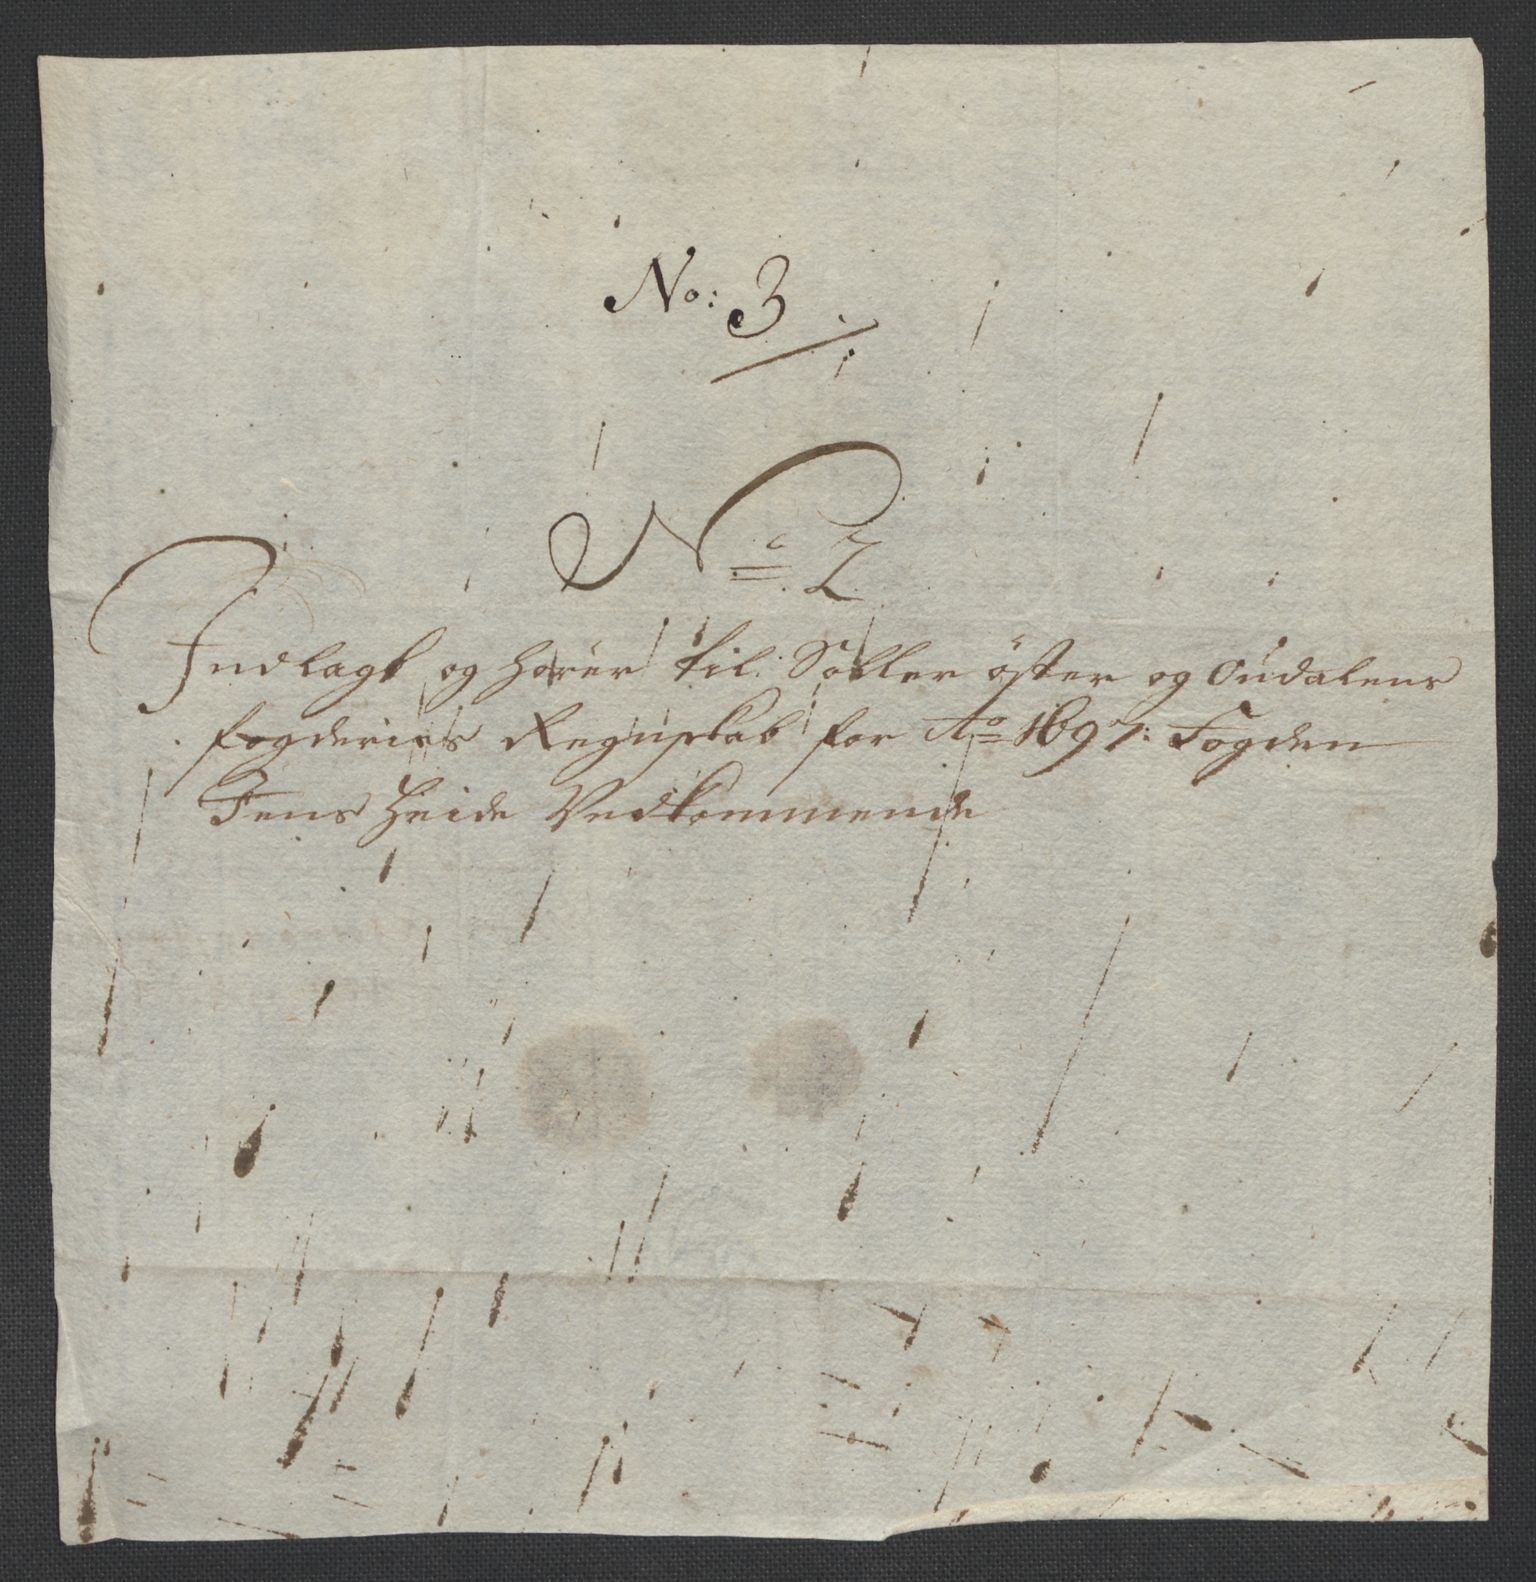 No: 3
No 2
Indlagt og hører til Soller öster og Oudalens
fogderies Regnskab for Ao 1697: Fogden
Jens Heide Vedkommende